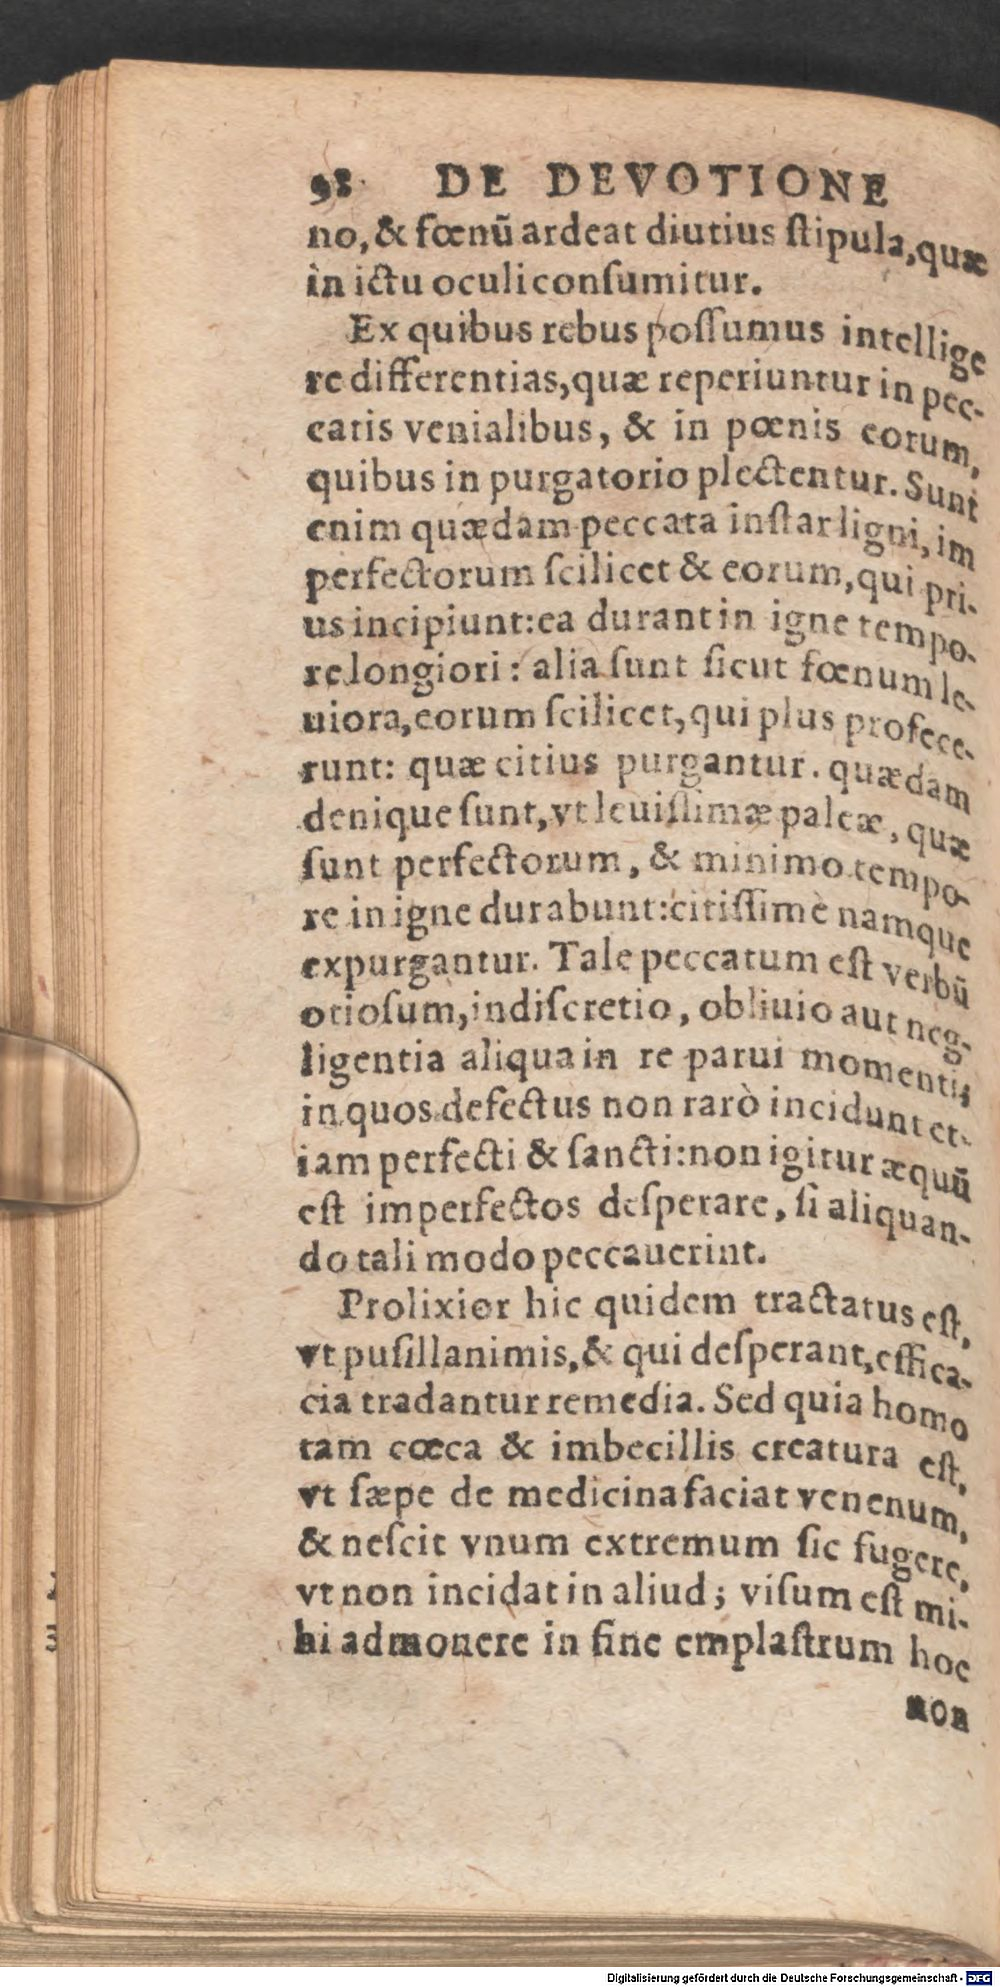 98 DE DEVOTIONE
no, & fœnũ ardeat diutius ſtipula, quæ
in ictu oculi conſumitur.
Ex quibus rebus poſſumus intellige
re differentias, quæ reperiuntur in pec-
catis venialibus, & in pœnis eorum,
quibus in purgatorio plectentur. Sunt
enim quædam peccata inſtar ligni, im
perfectorum ſcilicet & eorum, qui pri-
us incipiunt: ea durant in igne tempo-
re longiori: alia ſunt ſicut fœnum le-
uiora, eorum ſcilicet, qui plus profece-
runt: quæ citius purgantur. quædam
denique ſunt, vt leuiſſimæ paleæ, quæ
ſunt perfectorum, & minimo tempo-
re in igne durabunt: citiſſimè namque
expurgantur. Tale peccatum eſt verbũ
otioſum, indiſcretio, obliuio aut neg-
ligentia aliqua in re parui momenti;
in quos defectus non rarò incidunt et-
iam perfecti & ſancti: non igitur æquũ
eſt imperfectos deſperare, ſi aliquan-
do tali modo peccauerint.
Prolixior hic quidem tractatus eſt,
vt puſillanimis, & qui deſperant, effica-
cia tradantur remedia. Sed quia homo
tam cœca & imbecillis creatura eſt,
vt ſæpe de medicina faciat venenum,
& neſcit vnum extremum ſic fugere,
vt non incidat in aliud; viſum eſt mi-
hi admonere in fine emplaſtrum hoc
non
Digitalisierung gefördert durch die Deutsche Forschungsgemeinschaft - DFG